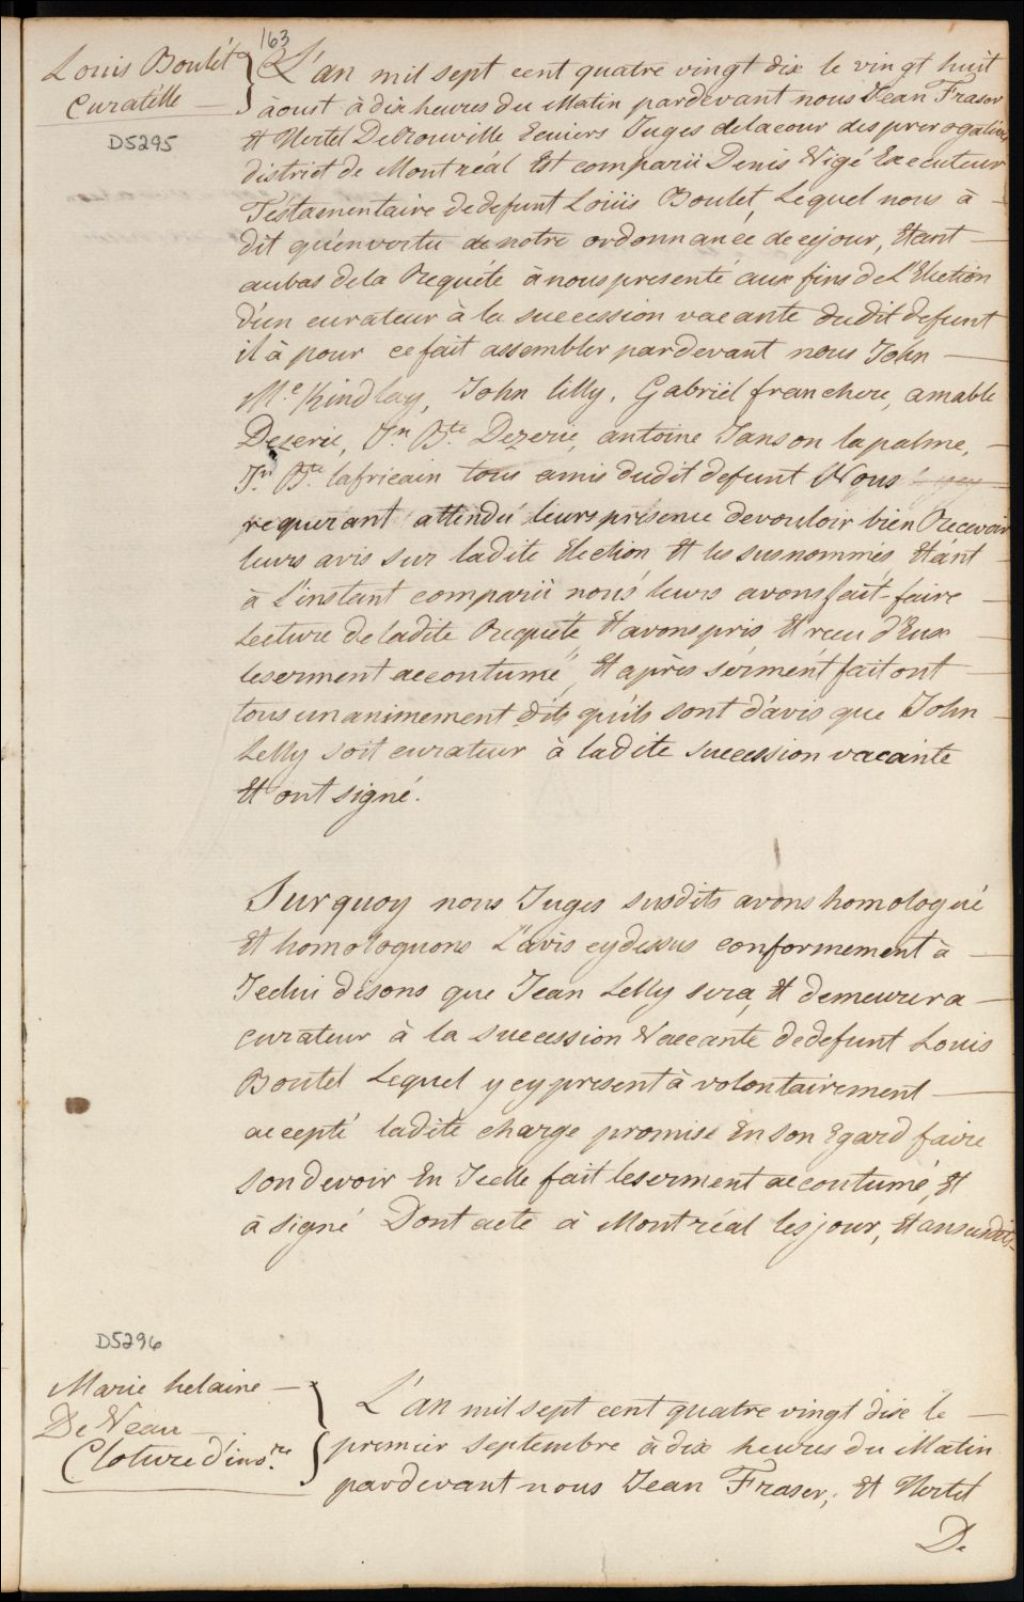 163
Louis Boulét
Curatélle
D5295
L'an mil sept cent quatre vingt dix le vingt huit
àoust à dix heures du Matin pardevant nous Jean Fraser
Et Hertel DeRouville Ecuiers Juges delacour des prerogatives
district de Montréal Est comparü Denis Vigé Executeur
Testamentaire dedefunt Loüis Boulet, Lequel nous à
dit qu'envertu de notre ordonnance de cejour, Etant
aubas dela Requéte à nous presenté aux fins de L'Election
d'un curateur à la succession vacante dudit defunt
il à pour ce fait assembler pardevant nous John
Mc Kindlay, John lilly, Gabriël franchere, amable
Dezerie, Jn Bte Dezerie, antoine Janson lapalme,
Jn Bte lafricain tous amis dudit defunt Nous
requerant attendü leurs présence devouloir bien Recevoir
leurs avis sur ladite Election, Et les susnommés, Etánt
à L'instant comparü nous leurs avons fait faire
Lecture de ladite Requéte, Et avons pris Et reçu d'Eux
leserment accoutumé, Et après serment fait ont
tous unanimement dits qu'ils sont d'avis que John
Lelly soit curateur à ladite succession vacante
Et ont signé.
Surquoy nous Juges susdits avons homologué
Et homologuons L'avis cydessus conformement à
Icelui disons que Jean Lelly sera, Et demeurera
curateur à la succession Vaccante dedefunt Louis
Boutel Lequel y cy present à volontairement
accepté ladite charge promise En son Egard faire
son devoir En Icelle fait leserment accoutumé, Et
à signé Dont acte à Montréal les jour, Et an susdits
D5296
Marie helaine
DeVeau
Cloture d'invre
L'an mil sept cent quatre vingt dix le
premier Septembre à dix heures du Matin
pardevant nous Jean Fraser, Et Hertel
De